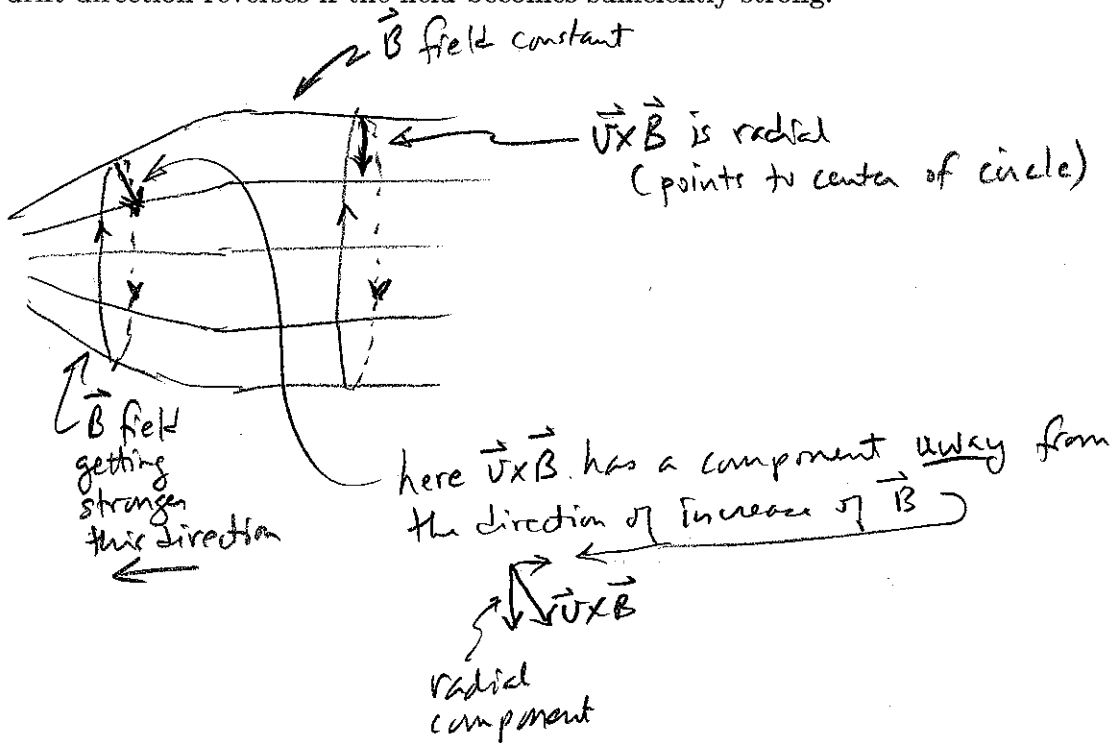 drift direction reverses if the field becomes sufficiently strong.
B⃗ field constant
v⃗×B⃗ is radial
(points to center of circle)
B⃗ field
getting
stronger
this direction
here v⃗×B⃗ has a component away from
the direction of increase of B⃗
v⃗×B⃗
radial
component